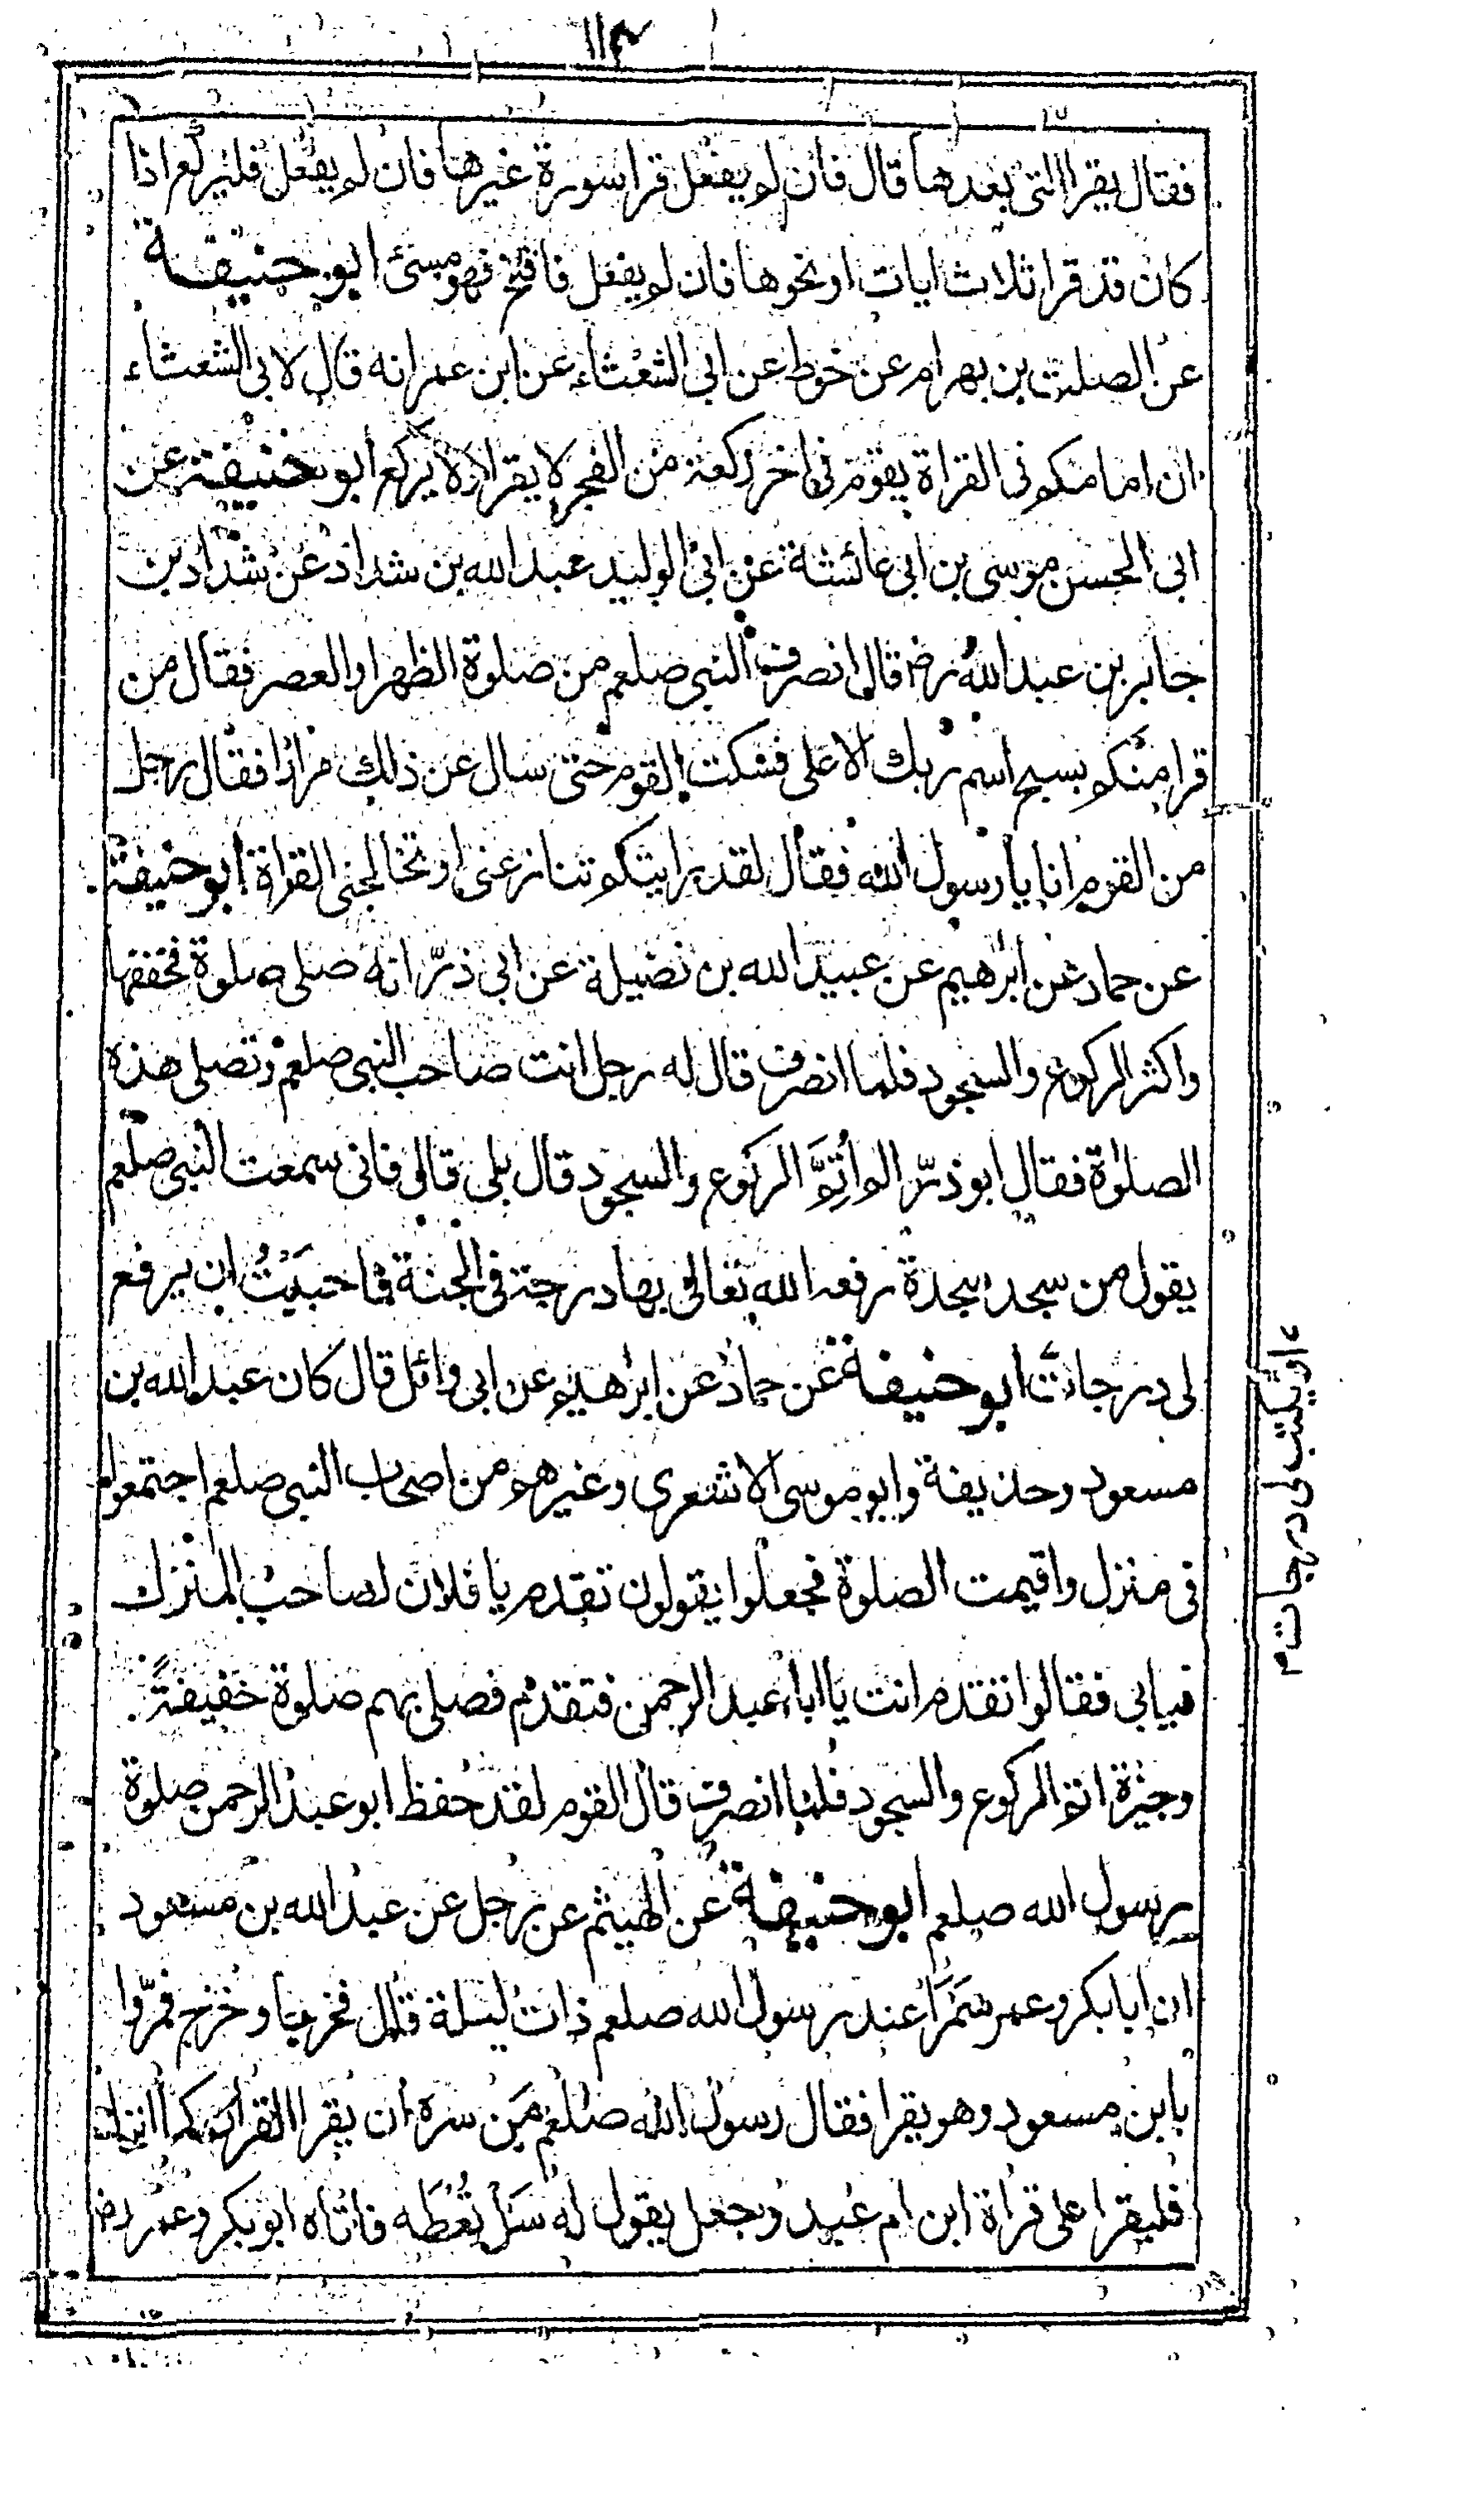 ١١٣
فقال يقرا التى بعدها قال فان لم يفعل قرا سورة غيرها فان لم يفعل فليركع اذا
كان قد قرا ثلاث ايات او نحوها فان لم يفعل فافتح فهو مسئ ابو حنيفة
عن الصلت بن بهرام عن حوط عن ابى الشعثاء عن ابن عمر انه قال لابى الشعثاء
ان امامكم فى القراة يقوم فى اخر ركعة من الفجر لا يقرا ولا يركع ابو حنيفة عن
ابى الحسن موسى بن ابى عائشة عن ابى الوليد عبد الله بن شداد عن شداد بن
جابر بن عبد الله رض قال انصرف النبى صلعم من صلوة الظهر او العصر فقال من
قرا منكم بسبح اسم ربك الاعلى فسكت القوم حتى سال عن ذلك مرارا فقال رجل
من القوم انا يا رسول الله فقال لقد رايتكم تنازعنى او تخالجنى القراة ابو حنيفة
عن حماد عن ابرهيم عن عبيد الله بن نضيلة عن ابى ذرّ انه صلى صلوة فخففها
واكثر الركوع والسجود فلما انصرف قال له رجل انت صاحب النبى صلعم وتصلى هذه
الصلوٰة فقال ابو ذرّ الم اُتِمَّ الركوع والسجود قال بلى قال فانى سمعت النبى صلعم
يقول من سجد سجدة رفعه الله تعالى بها درجة فى الجنة فاحببتُ ان يرفع
لى درجات ابو حنيفة عن حماد عن ابرٰهيم عن ابى وائل قال كان عبد الله بن
مسعود وحذيفة وابو موسى الاشعرى وغيرهم من اصحاب النبى صلعم اجتمعوا
فى منزل واقيمت الصلوة فجعلوا يقولون تقدم يا فلان لصاحب المنزل
فيابى فقالوا تقدم انت يا ابا عبد الرحمن فتقدم فصلى بهم صلوة خفيفةً
وجيزة اتم الركوع والسجود فلما انصرف قال القوم لقد حفظ ابو عبد الرحمن صلوة
رسول الله صلعم ابو حنيفة عن الهيثم عن رجل عن عبد الله بن مسعود
ان ابا بكر وعمر سَمَرَا عند رسول الله صلعم ذات ليلة قال فخرجا وخرج فمرّوا
بابن مسعود وهو يقرا فقال رسول الله صلعم مَن سره ان يقرا القران كما انزل
فليقرا على قراة ابن ام عبد وجعل يقول له سَلْ تُعْطَه فاتاه ابو بكر وعمر رض
او يكتب لى درجات م